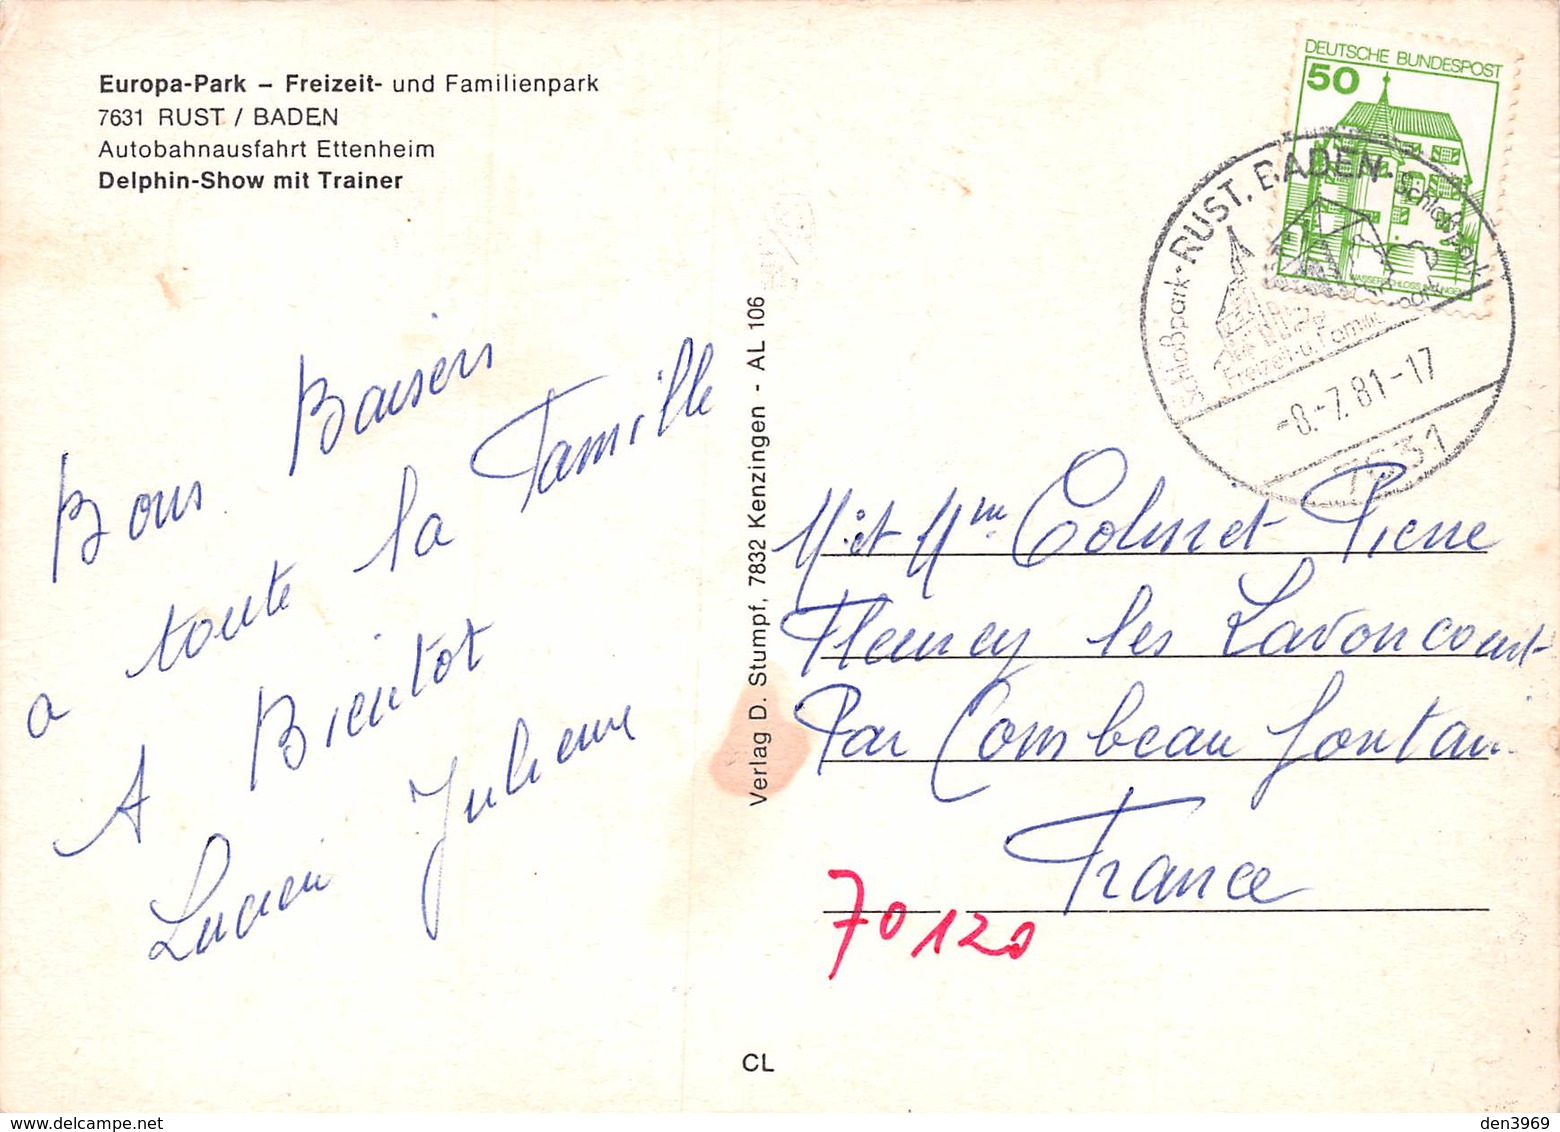 Europa-Park – Freizeit- und Familienpark
7631 RUST / BADEN
Autobahnausfahrt Ettenheim
Delphin-Show mit Trainer
Bons Baisers
a toute la Famille
A Bientot
Lucien Julienne
Verlag D. Stumpf, 7832 Kenzingen - AL 106
CL
DEUTSCHE BUNDESPOST
50
RUST, BADEN
Schloßpark
-8.-7.81-17
7631
M. et Mme Colinet Pierre
Fleurey les Lavoncourt
Par Combeau fontain
France
70120
den3969